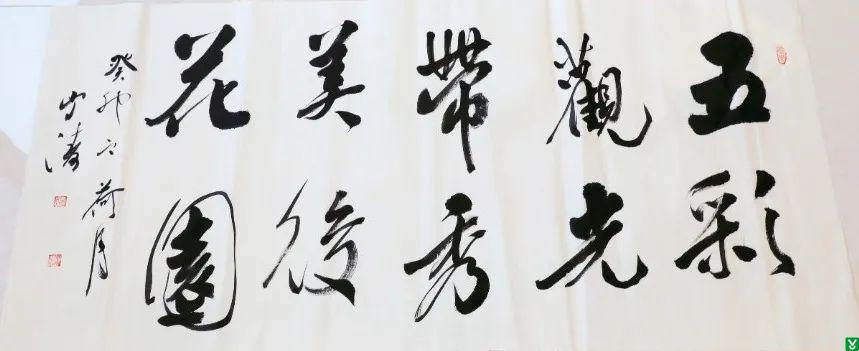 五彩
觀光
帶秀
美後
花園
癸卯之荷月
濤